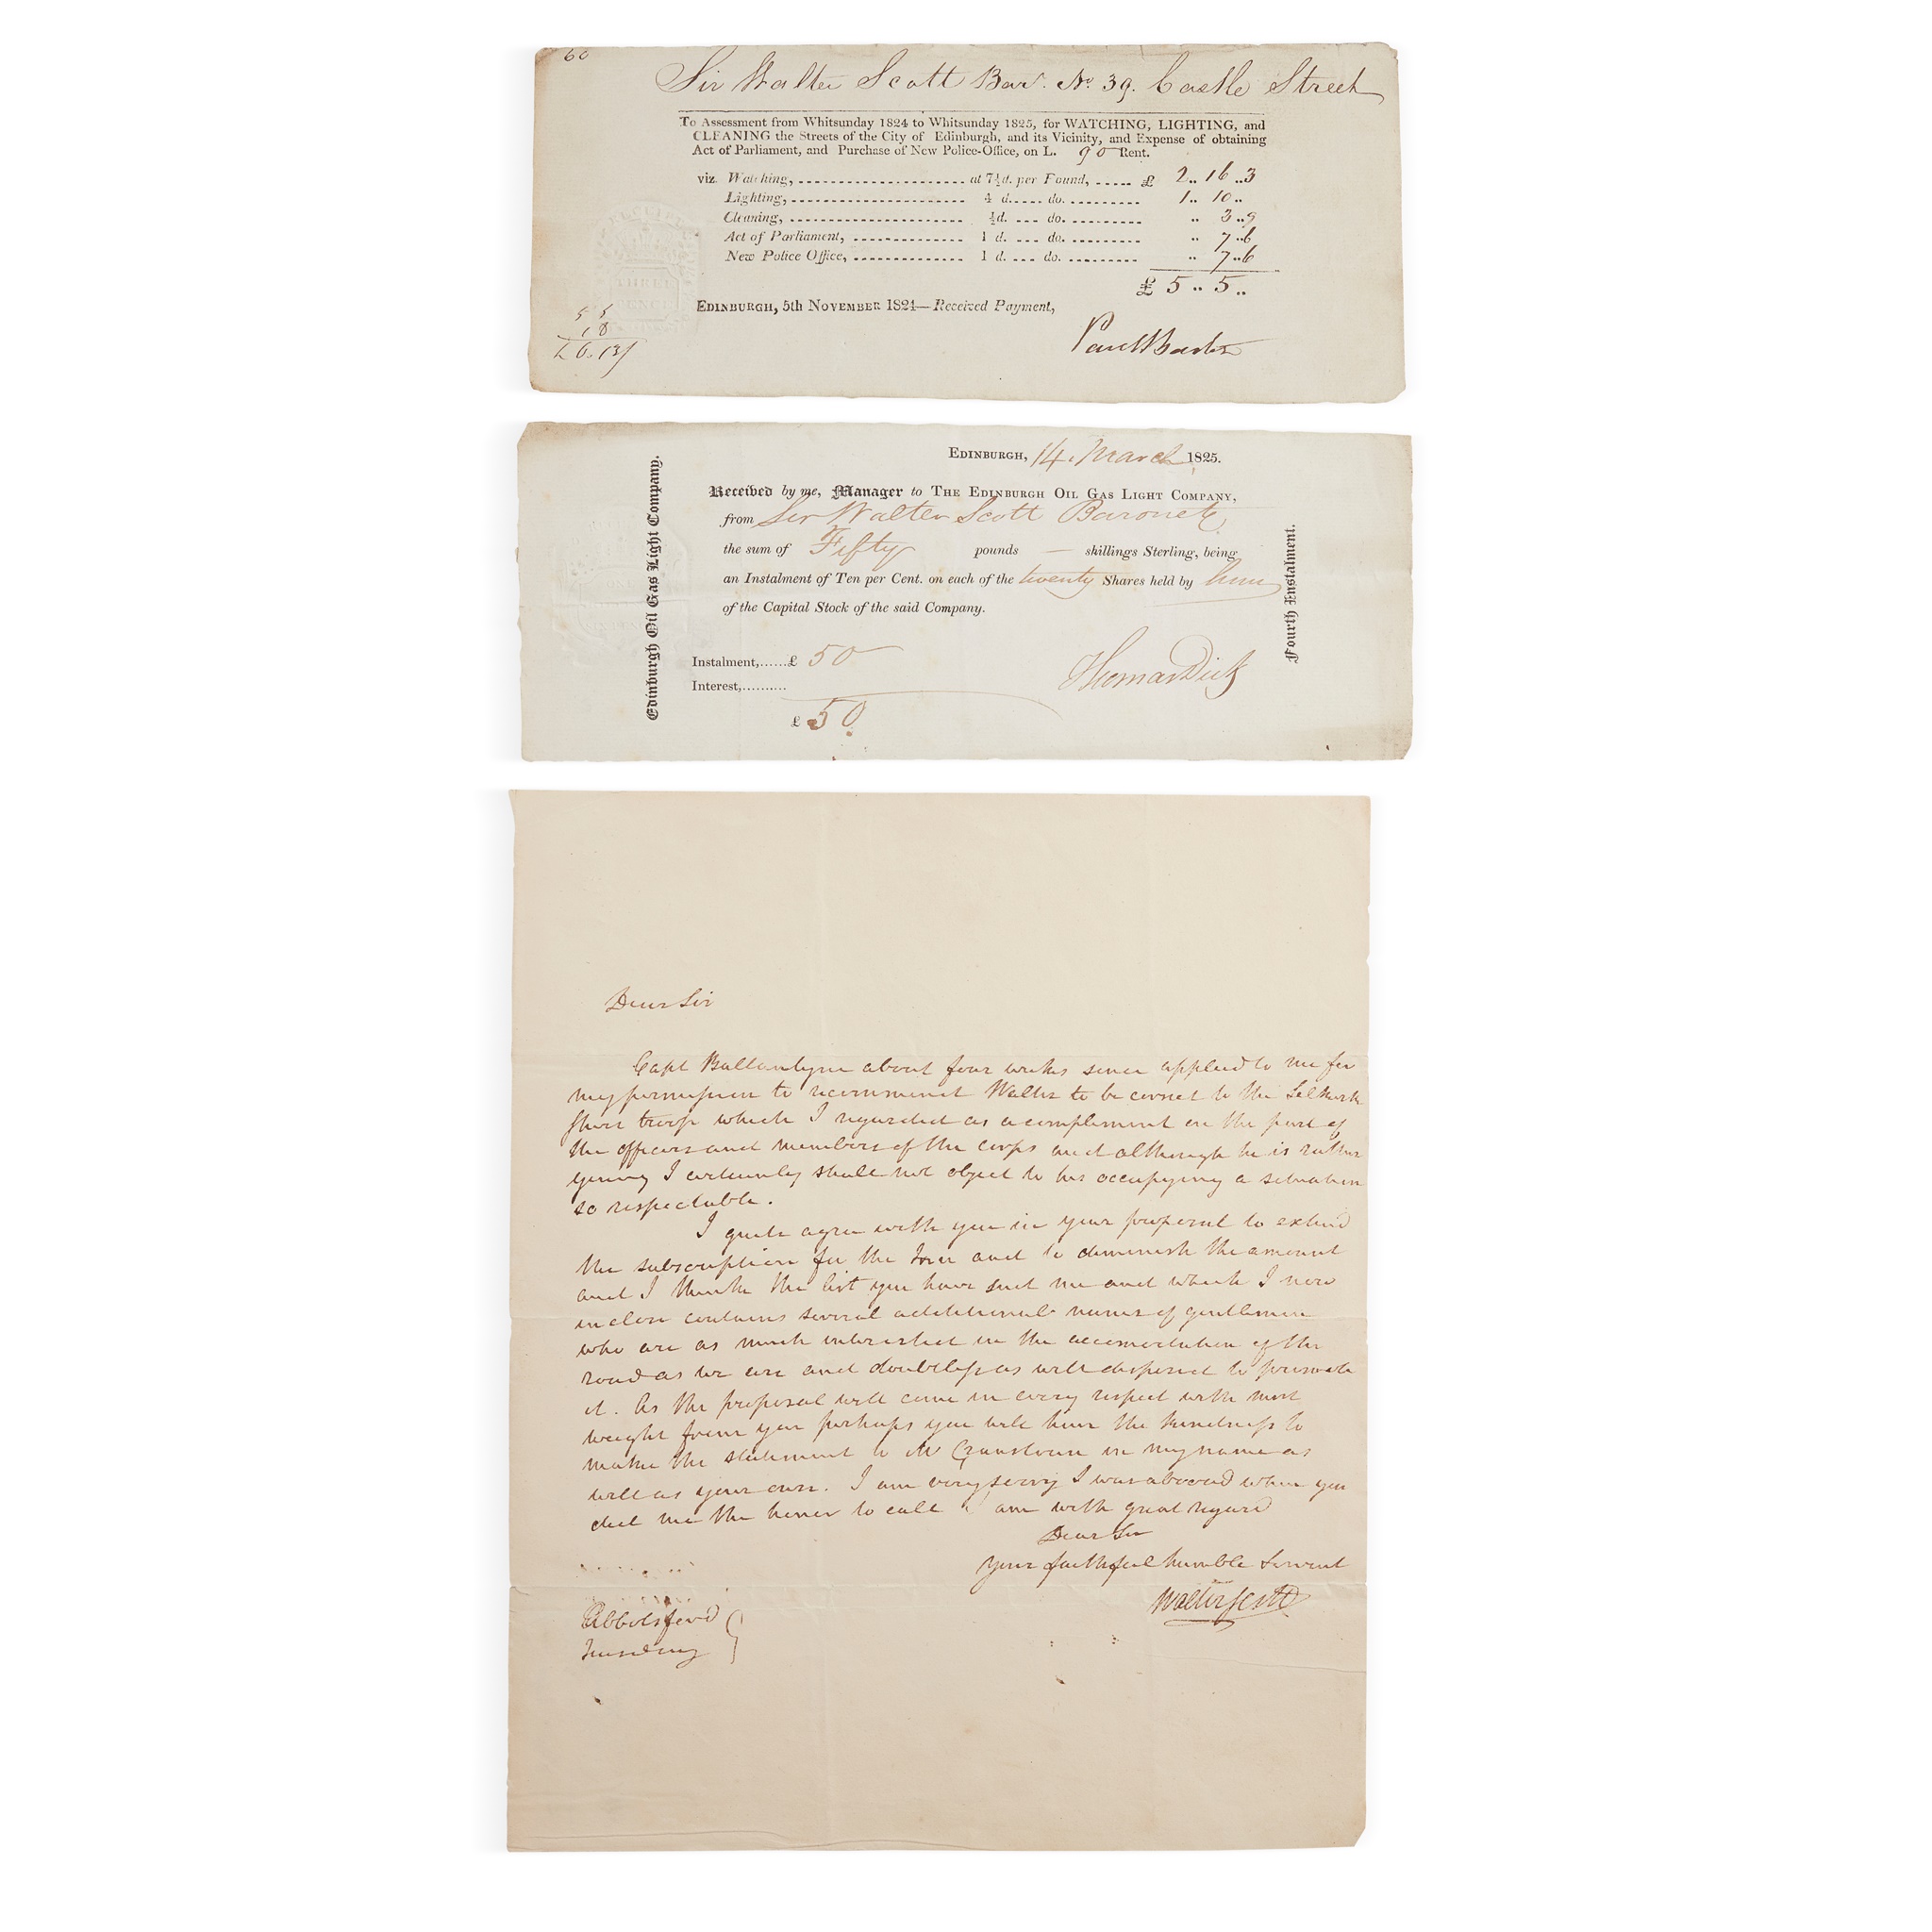 60
Sir Walter Scott Bar.t No. 39. Castle Street
To Assessment from Whitsunday 1824 to Whitsunday 1825, for WATCHING, LIGHTING, and
CLEANING the Streets of the City of Edinburgh, and its Vicinity, and Expense of obtaining
Act of Parliament, and Purchase of New Police-Office, on L. 90 Rent.
viz. Watching, at 7½d. per Pound, £ 2 .. 16 .. 3
Lighting, 4 d. do. 1 .. 10 ..
Cleaning, ½d. do. .. 3 .. 9
Act of Parliament, 1 d. do. .. 7 .. 6
New Police Office, 1 d. do. .. 7 .. 6
£ 5 .. 5 ..
EDINBURGH, 5th NOVEMBER 1824—Received Payment,
5 5
18
RECEIPT
THREE
PENCE
Edinburgh Oil Gas Light Company.
EDINBURGH, 14. March 1825.
Received by me, Manager to THE EDINBURGH OIL GAS LIGHT COMPANY,
from Sir Walter Scott Baronet,
the sum of Fifty pounds — shillings Sterling, being
an Instalment of Ten per Cent. on each of the twenty Shares held by him
of the Capital Stock of the said Company.
Instalment,......£ 50
Interest,..........
£ 50
Thomas Dick
Fourth Instalment.
Dear Sir
Capt Ballantyne about four weeks since applied to me for
my permission to recommend Walter to be cornet to the Selkirk
Shire troop which I regarded as a compliment on the part of
the officers and members of the corps and although he is rather
young I certainly shall not object to his occupying a situation
so respectable.
I quite agree with you in your proposal to extend
the subscription for the and to diminish the amount
and I think the list you have sent me and which I now
inclose contains several additional names of gentlemen
who are as much interested in the accomodation of the
road as we are and doubtless as well disposed to promote
it. As the proposal will come in every respect with most
weight from you perhaps you will have the kindness to
make the statement to Mr Cranstoun in my name as
well as your own. I am very sorry I was abroad when you
did me the honor to call I am with great regard
Dear Sir
Your faithful humble Servant
Walter Scott
Abbotsford